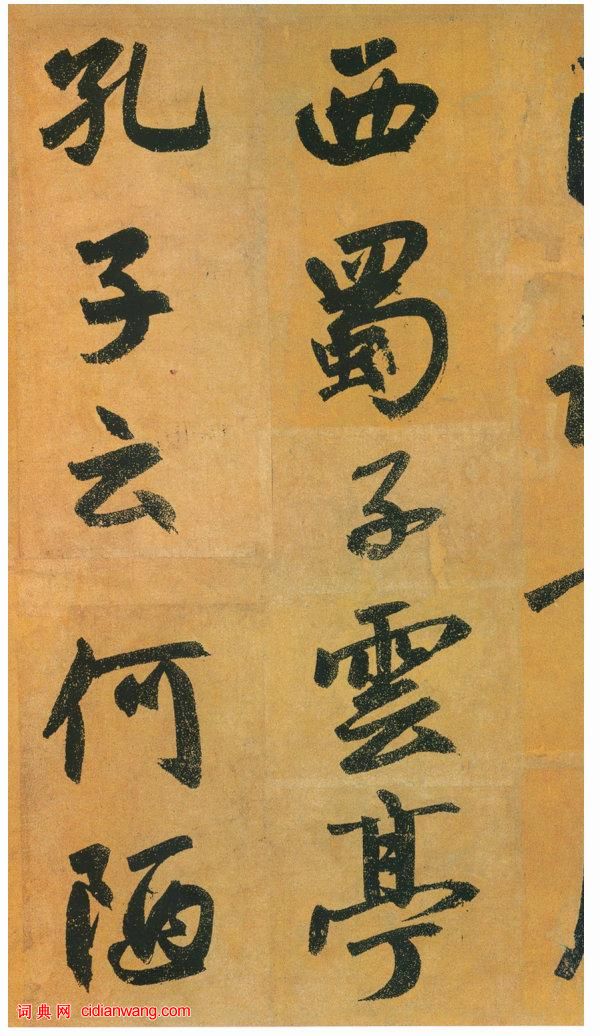 西蜀子雲亭
孔子云何陋
词典网 cidianwang.com